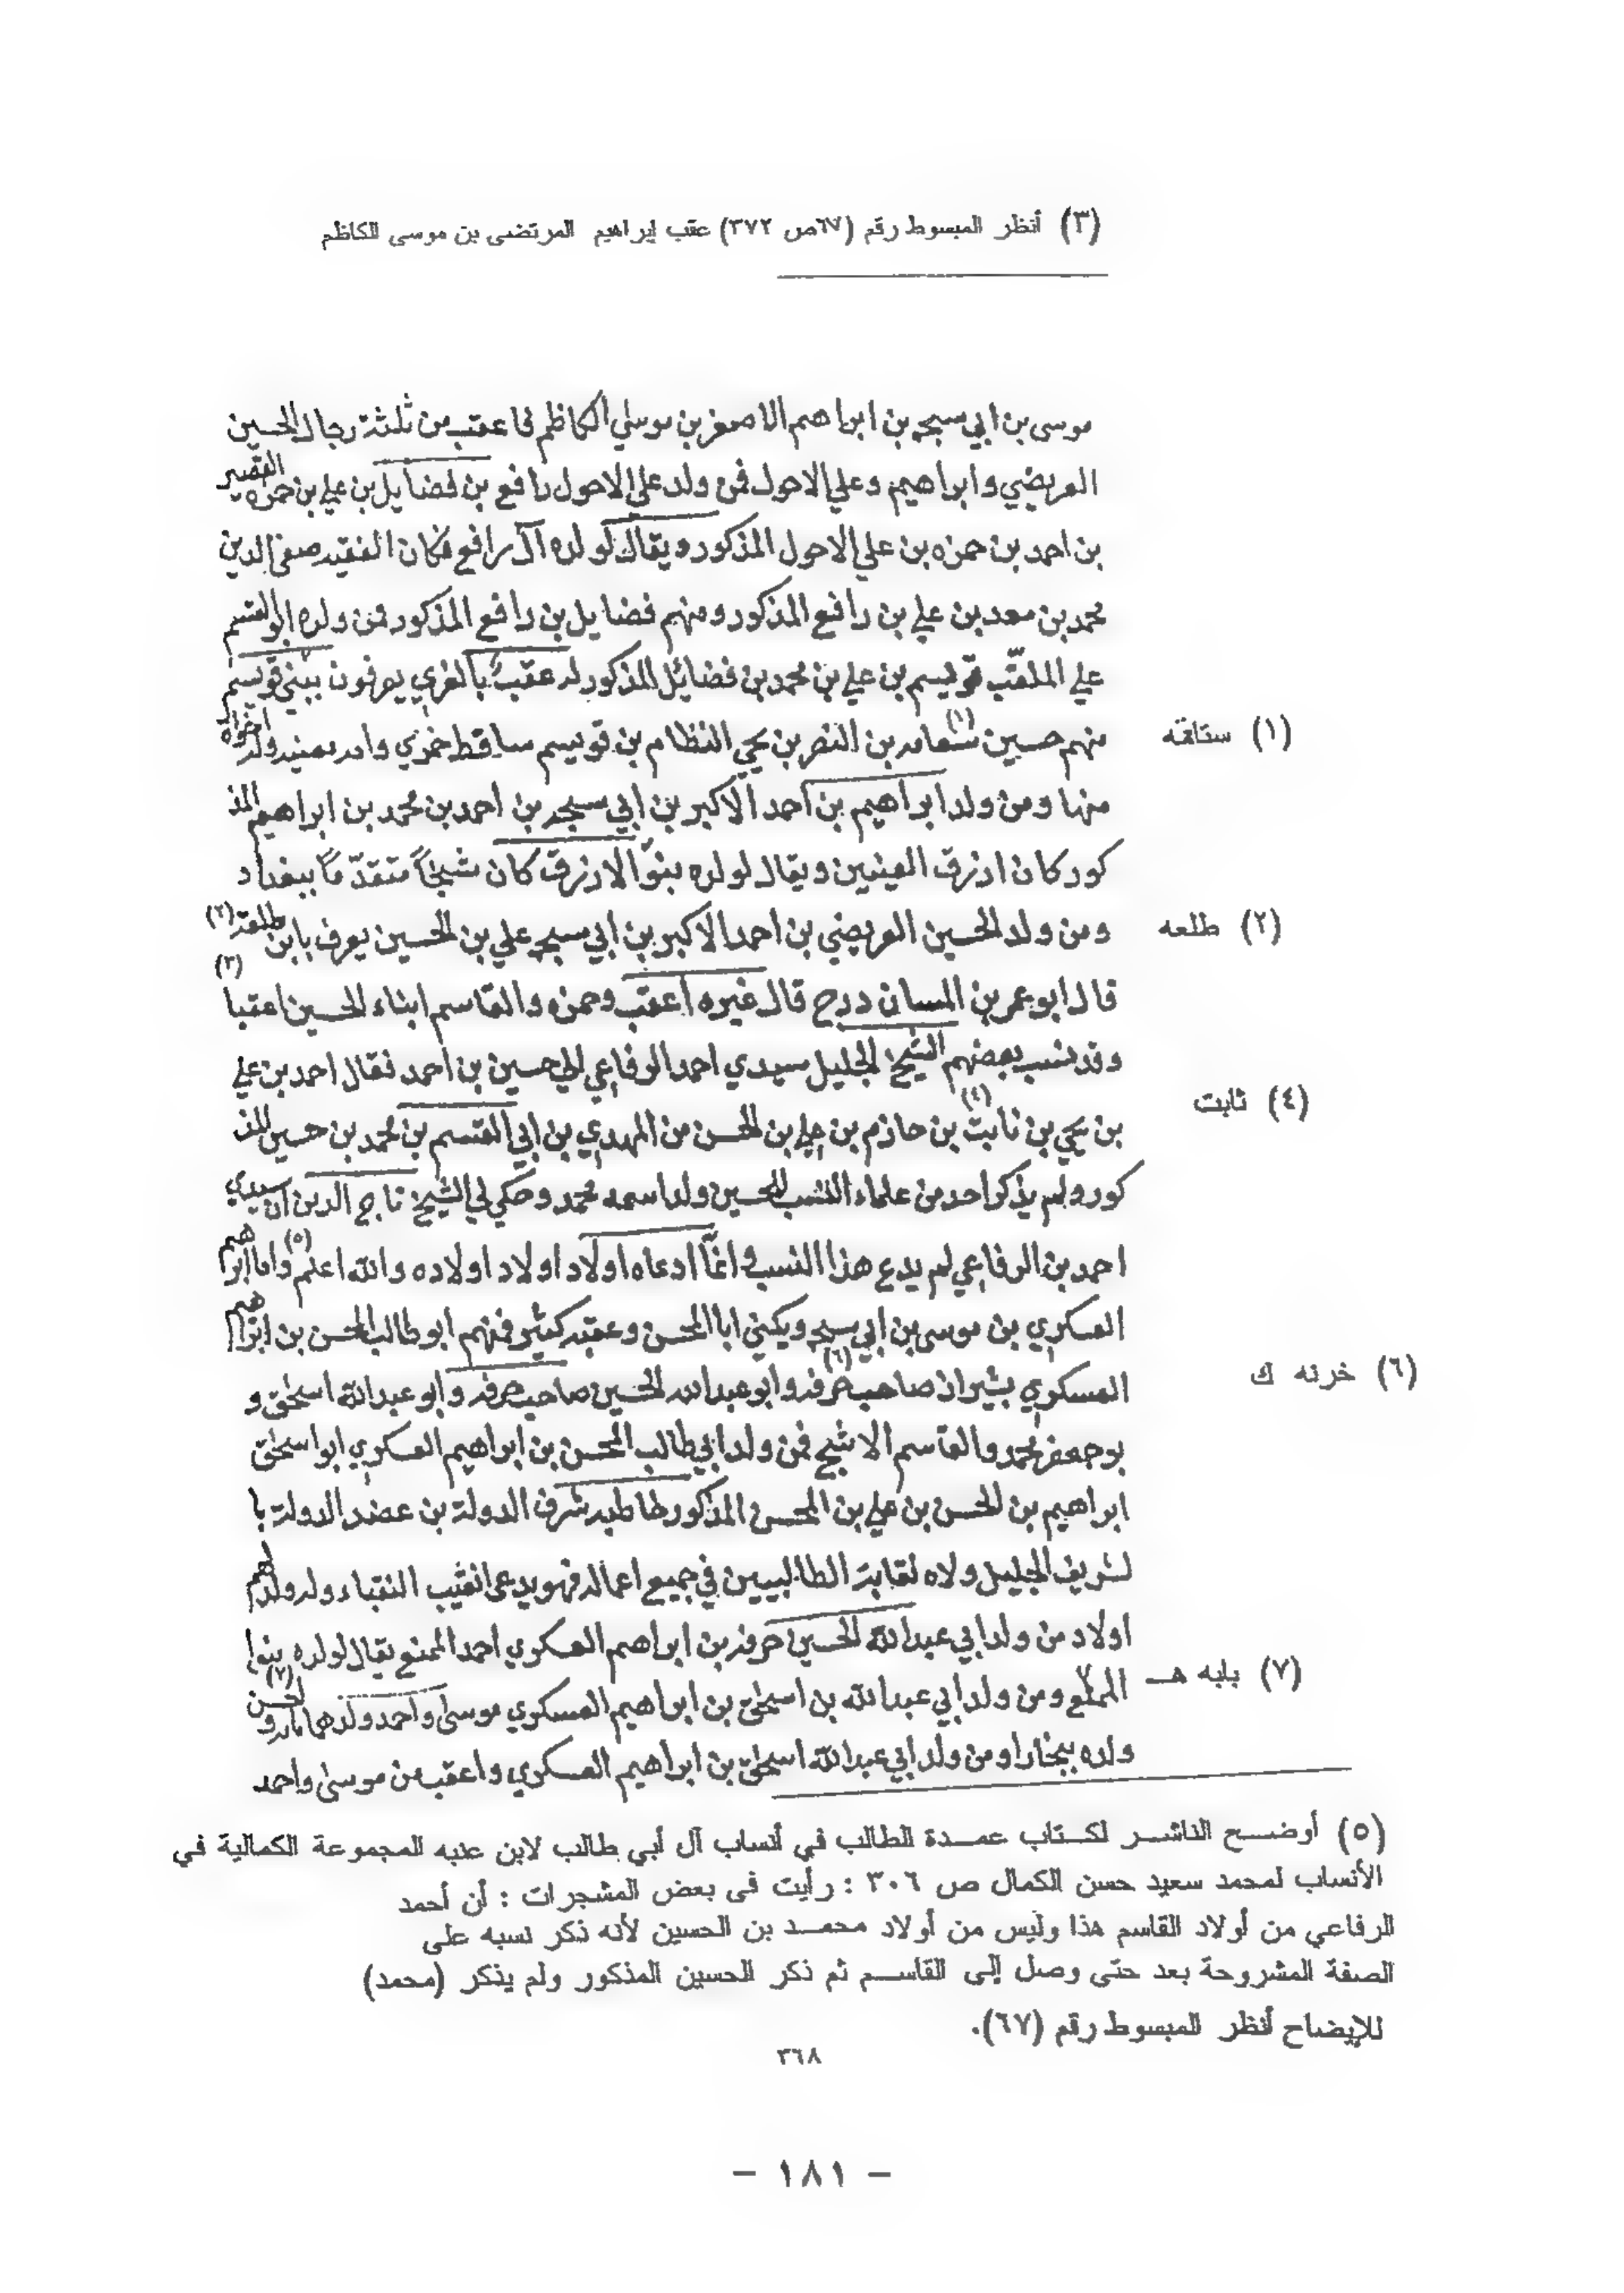 (٣) أنظر المبسوط رقم (٦٧ص ٣٧٢) عقب إبراهيم المرتضى بن موسى الكاظم
موسى بن ابي سبحه بن ابراهيم الاصغر بن موسى الكاظم فاعقب من ثلثة رجال الحسين
العريضي وابراهيم وعلي الاحول فمن ولد علي الاحول رافع بن فضايل بن علي بن حمزه القصير
بن احمد بن حمزه بن علي الاحول المذكور ويقال لولده آل رافع فكان الفقيه صفي الدين
محمد بن معد بن علي بن رافع المذكور ومنهم فضايل بن رافع المذكور فمن ولده ابو القسم
علي الملقّب قويسم بن علي بن محمد بن فضائل المذكور له عقب بالغري يعرفون ببني قويسم
منهم حسين (١) بن النضر بن يحي النظام بن قويسم ساقط خمري وامه مغنيه وله اخوه
منها ومن ولد ابراهيم بن احمد الاكبر بن ابي سبحه بن احمد بن محمد بن ابراهيم المذ
كور كان ازرق العينين ويقال لولده بنوا الازرق كان شيخاً متقدّماً ببغداد
ومن ولد الحسين العريضي بن احمد الاكبر بن ابي سبحه علي بن الحسين يعرف بابن طلعة (٢)
قال ابو عمر بن المسان درج قال غيره اعقب وحمزه والقاسم ابناء الحسين اعقبا (٣)
وقد نسب بعضهم الشيخ الجليل سيدي احمد الرفاعي الي حسين بن احمد فقال احمد بن علي
بن يحي بن نابت (٤) بن حازم بن علي بن الحسن من المهدي بن ابي القسم بن محمد بن حسين المذ
كور ولم يذكر احد من علماء النسب للحسين ولد اسمه محمد وحكي لي الشيخ تاج الدين ان سيدي
احمد بن الرفاعي لم يدع هذا النسب وانمّا ادعاه اولاد اولاد اولاده والله اعلم (٥) واما ابراهيم
العسكري بن موسى بن ابي سبحه ويكنى ابا المحسن وعقبه كثير فمنهم ابو طالب المحسن بن ابراهيم
العسكري بشيراز صاحب (٦) وابو عبدالله الحسين صاحب وابو عبدالله اسحق و
بو جعفر محمد والقاسم الاشج فمن ولد ابي طالب المحسن بن ابراهيم العسكري ابو اسحق
ابراهيم بن الحسن بن علي بن المحسن المذكور خاطبه شرف الدولة بن عضد الدولة با
لشريف الجليل ولاه نقابة الطالبيين في جميع اعماله فهو يدعى نقيب النقباء وله ولهم
اولاد من ولد ابي عبدالله الحسين بن ابراهيم العسكري احمد يقال لولده بنوا
ومن ولد ابي عبدالله بن اسحق بن ابراهيم العسكري موسى واحمد ولدهما (٧)
ولده ببخارا ومن ولد ابي عبدالله اسحق بن ابراهيم العسكري واعقب من موسى واحمد
(١) ستاقه
(٢) طلعه
(٤) ثابت
(٦) خرنه ك
(٧) بابه هـ
(٥) أوضح الناشر لكتاب عمدة الطالب في أنساب آل أبي طالب لابن عنبه المجموعة الكمالية في
الأنساب لمحمد سعيد حسن الكمال ص ٣٠٦ : رأيت فى بعض المشجرات : أن أحمد
الرفاعي من أولاد القاسم هذا وليس من أولاد محمد بن الحسين لأنه ذكر نسبه على
الصفة المشروحة بعد حتى وصل إلى القاسم ثم ذكر الحسين المذكور ولم يذكر (محمد)
للإيضاح أنظر المبسوط رقم (٦٧).
٣٦٨
– ١٨١ –